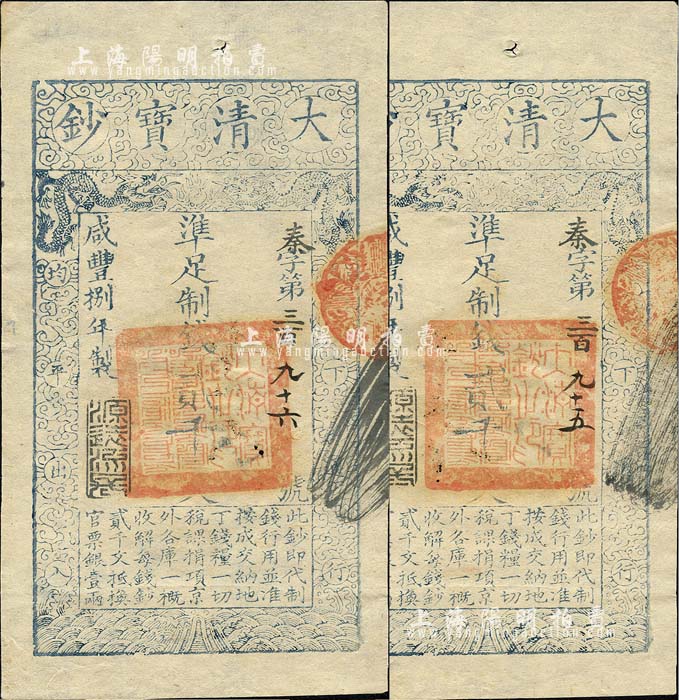 上海陽明拍賣
www.yangmingauction.com
大清寶鈔
秦字第三百九十六號
準足制錢貳千文
咸豐捌年製
均平出入
此鈔即代制
錢行用並准
按成交納地
丁錢糧一切
稅課捐項京
外各庫一概
收解每錢鈔
貳千文抵換
官票銀壹兩
大清寶
秦字第三百九十五號
準足制錢貳千文
豐捌年
下
行
此鈔即代制
錢行用並准
按成交納地
丁錢糧一切
稅課捐項京
外各庫一概
收解每錢鈔
貳千文抵換
上海陽明拍賣
www.yangmingauction.com
上海陽明拍賣
www.yangmingauction.com